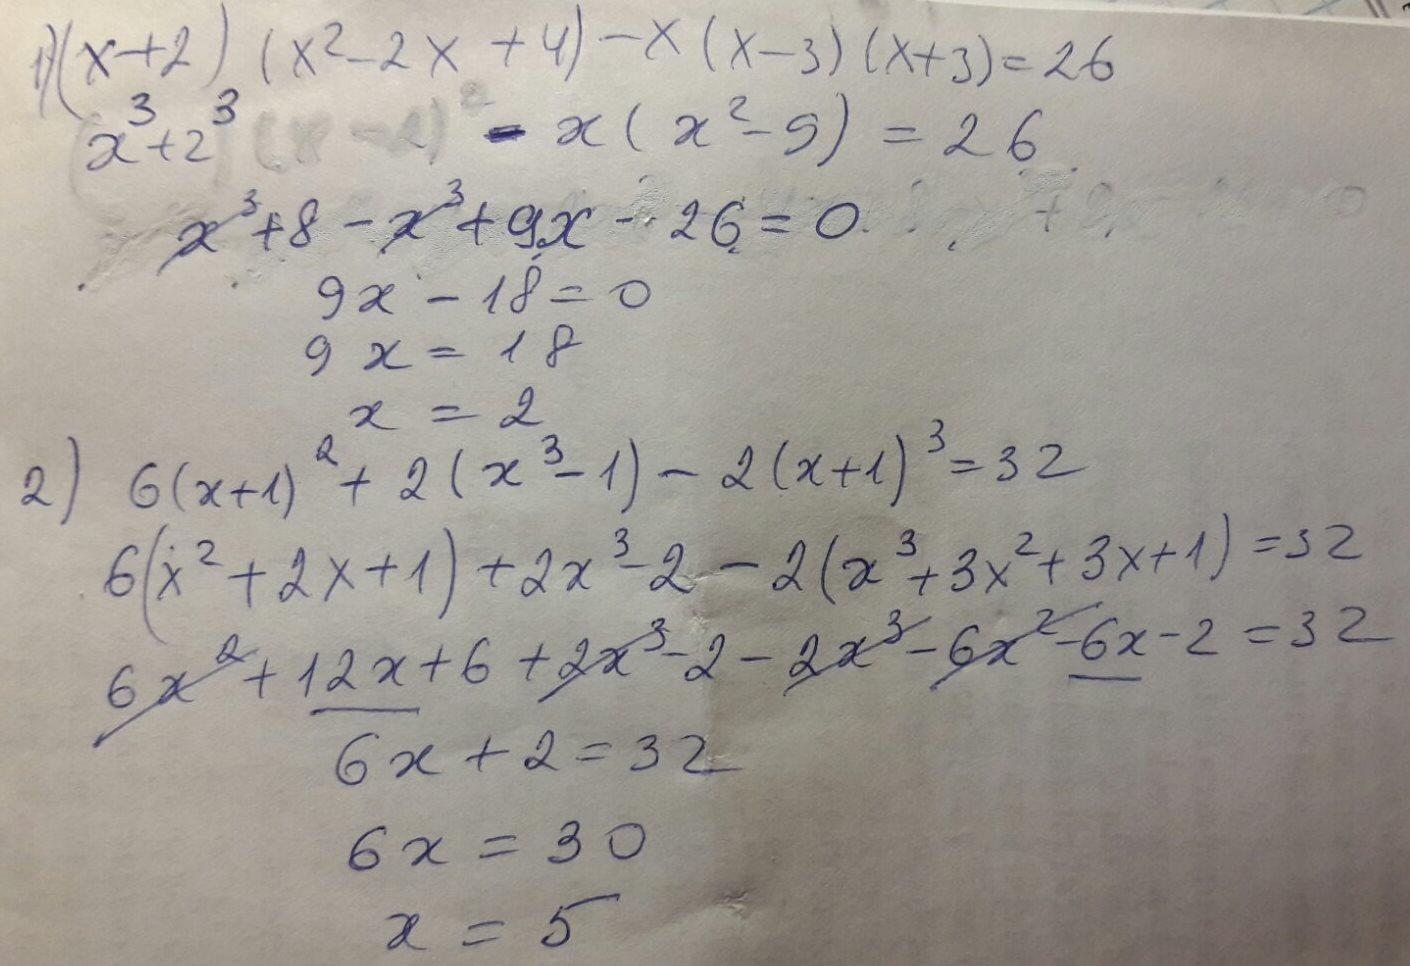 1) (x+2) (x²-2x +4) - x (x-3) (x+3) = 26
x³+2³ - x ( x² - 9) = 26
x³ + 8 - x³ + 9x - 26 = 0
9x - 18 = 0
9 x = 18
x = 2
2) 6(x+1)² + 2(x³-1) - 2(x+1)³ = 32
6(x²+2x+1) + 2x³-2 - 2(x³+3x²+3x+1) = 32
6x² + 12x + 6 + 2x³ - 2 - 2x³ - 6x² - 6x - 2 = 32
6x + 2 = 32
6x = 30
x = 5